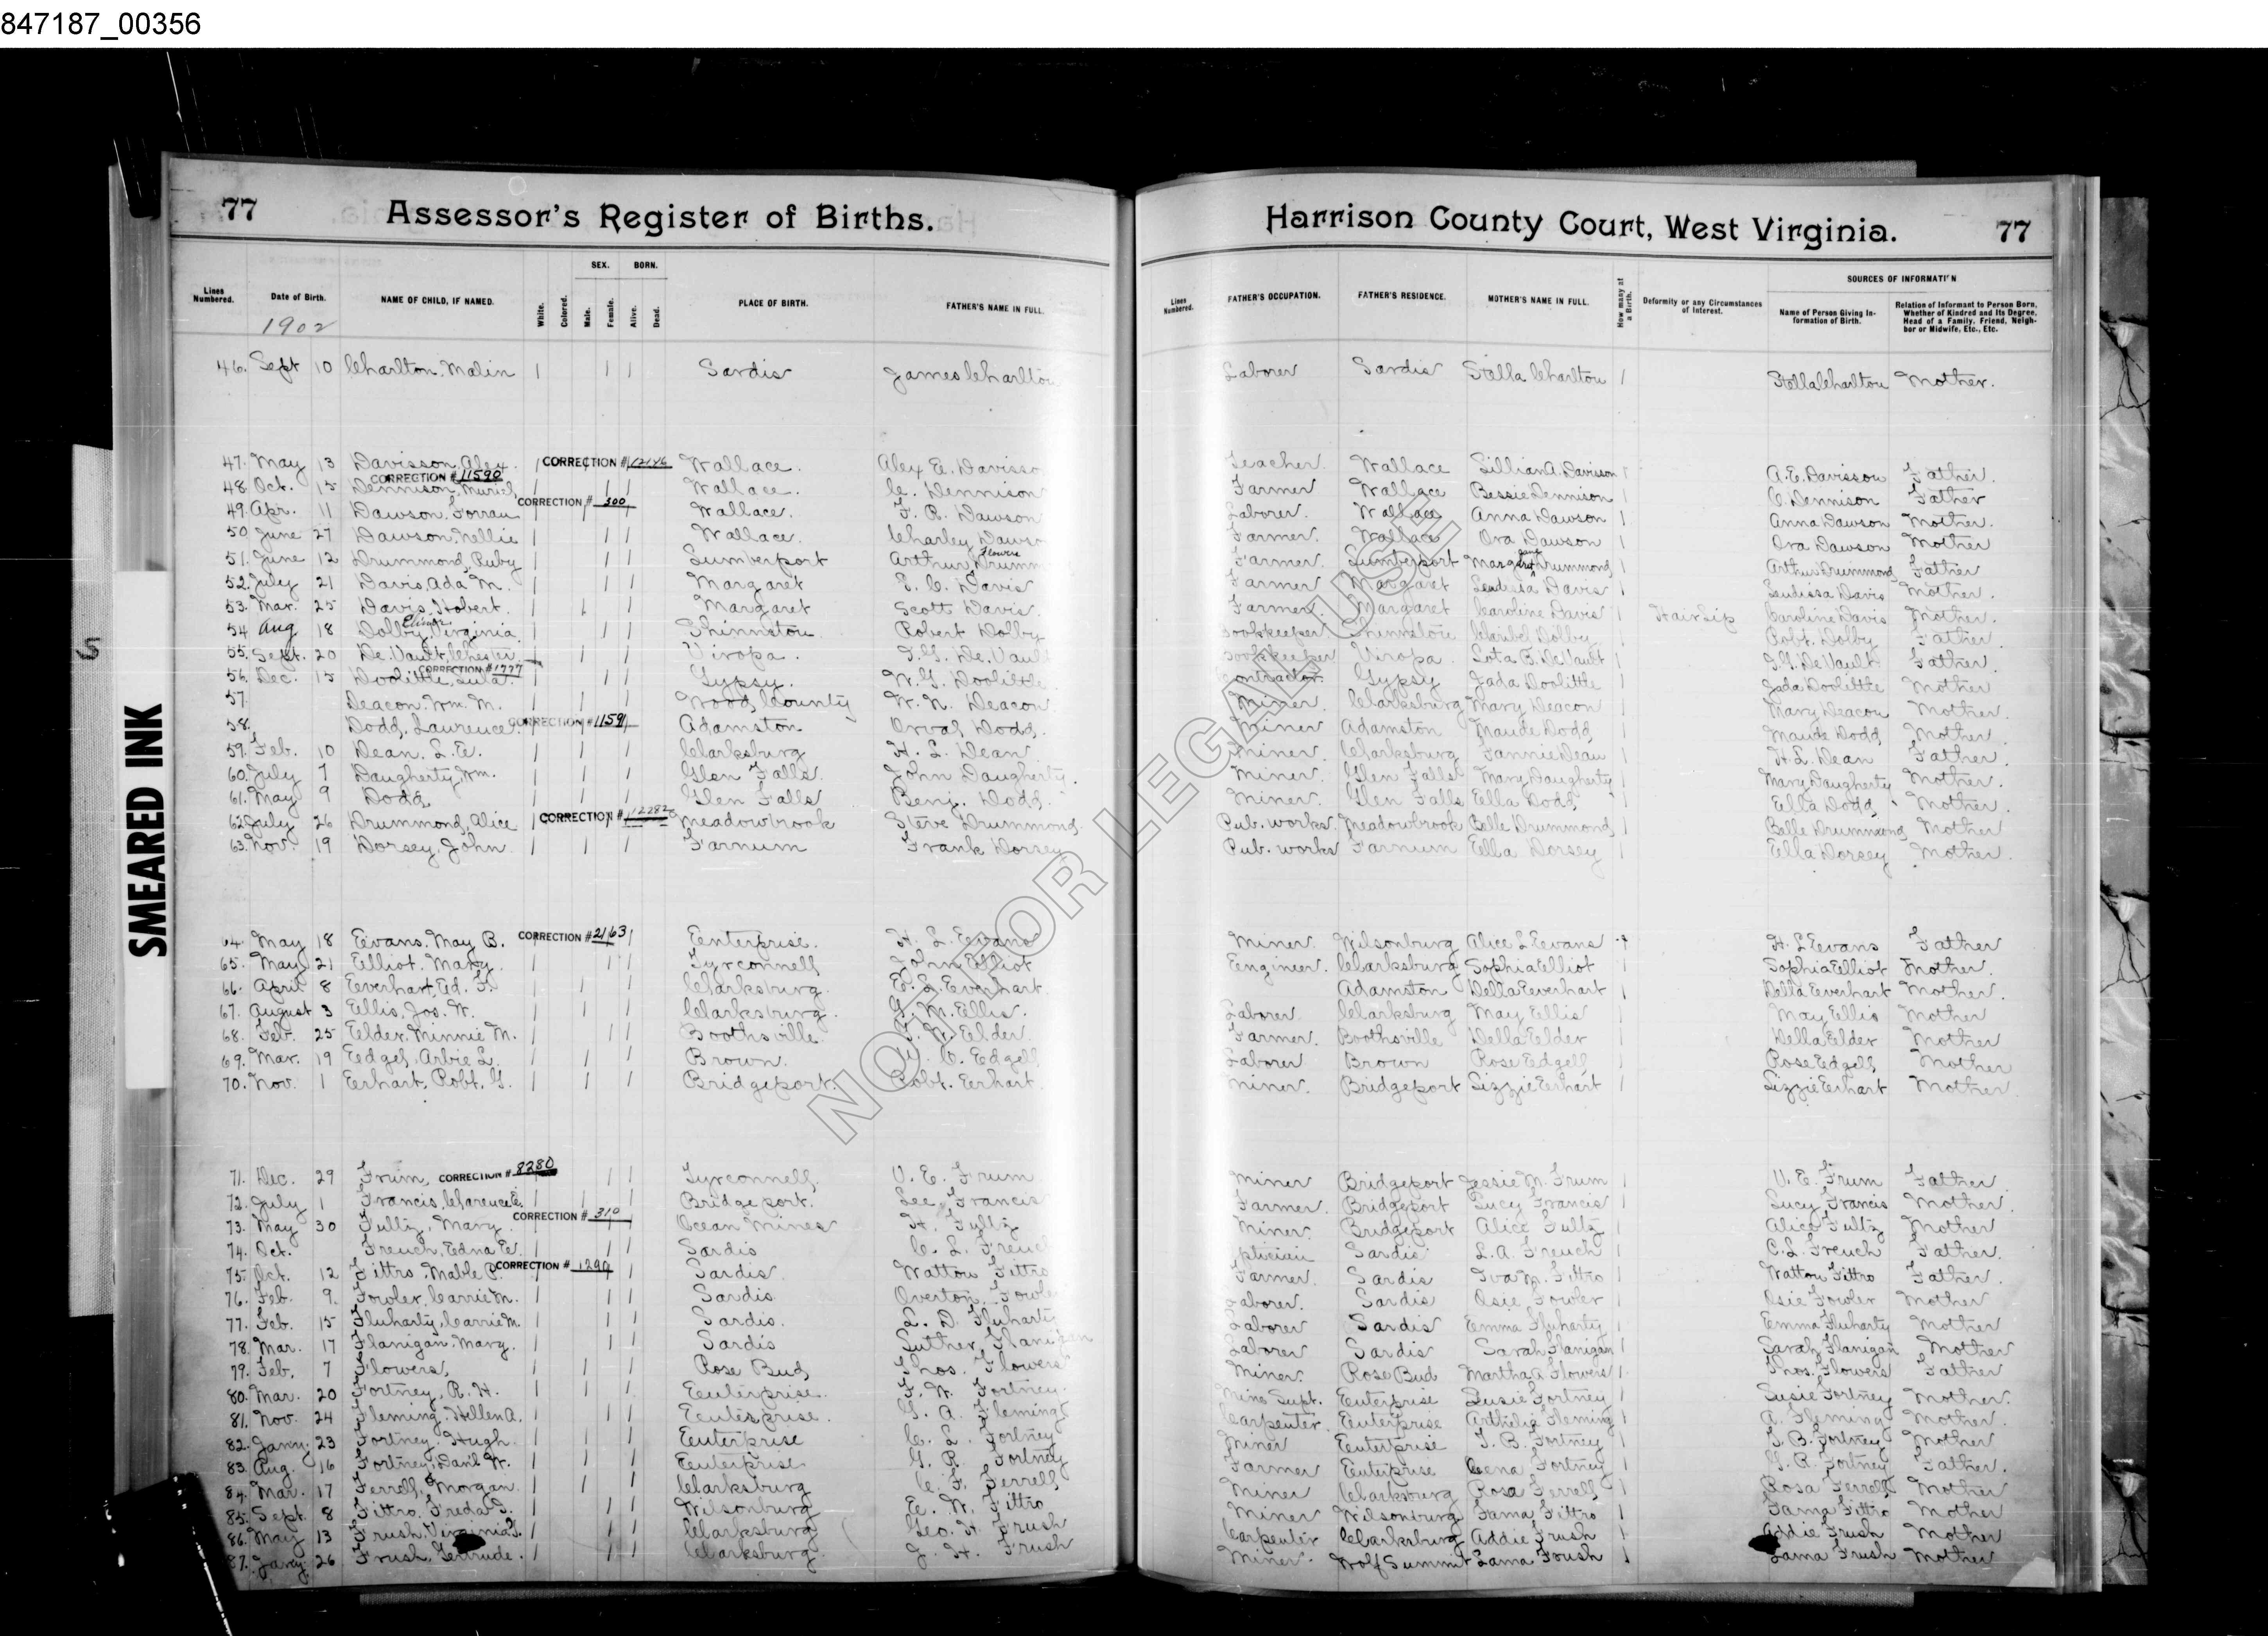 847187_00356
77 Assessor's Register of Births. Harrison County Court, West Virginia. 77
SMEARED INK
NOT FOR LEGAL USE
Lines Numbered. Date of Birth. NAME OF CHILD, IF NAMED. White. Colored. SEX. Male. Female. BORN. Alive. Dead. PLACE OF BIRTH. FATHER'S NAME IN FULL. Lines Numbered. FATHER'S OCCUPATION. FATHER'S RESIDENCE. MOTHER'S NAME IN FULL. How many at a Birth. Deformity or any Circumstances of Interest. SOURCES OF INFORMATI'N Name of Person Giving Information of Birth. Relation of Informant to Person Born, Whether of Kindred and Its Degree, Head of a Family, Friend, Neighbor or Midwife, Etc., Etc.
1902
46. Sept 10 Charlton, Malin 1 1 1 Sardis James Charlton Laborer Sardis Stella Charlton 1 Stella Charlton Mother.
47. May 13 Davisson, Alex. 1 CORRECTION # 12146 Wallace. Alex E. Davisso Teacher. Wallace Lillian A. Davisson 1 A. E. Davisson Father.
CORRECTION # 11590
48. Oct. 15 Dennison, Muriel 1 1 1 Wallace. C. Dennison Farmer Wallace Bessie Dennison 1 C. Dennison Father
CORRECTION # 300
49. Apr. 11 Dawson, Forran 1 1 1 Wallace. F. R. Dawson Laborer. Wallace Anna Dawson 1 Anna Dawson Mother.
50. June 27 Dawson, Nellie 1 1 1 Wallace. Charley Daws Farmer. Wallace Ora Dawson 1 Ora Dawson Mother
51. June 12 Drummond, Ruby 1 1 1 Lumberport Arthur Flowers Drumm Farmer. Lumberport Margaret Drummond 1 Arthur Drummond Father
52. July 21 Davis, Ada M. 1 1 1 Margaret E. C. Davis Farmer Margaret Leudissa Davis 1 Leudissa Davis Mother.
53. Mar. 25 Davis, Hobert. 1 1 1 Margaret Scott Davis. Farmer. Margaret Caroline Davis 1 Hair Lip Caroline Davis Mother.
54 Aug 18 Dolby, Elinor Virginia 1 1 1 Shinnston Robert Dolby Bookkeeper Shinnston Claribel Dolby Robt. Dolby Father
55. Sept. 20 De Vault, Chester 1 1 1 Viropa. De Vault Bookkeeper Viropa Lota B. De Vault 1 De Vault Father.
CORRECTION # 1777
56. Dec. 15 Doolittle, Lula. 1 1 1 Gypsy. W. G. Doolittle Contractor Gypsy Jada Doolittle 1 Jada Doolittle Mother
57. Deacon, Wm. M. 1 1 1 Wood County W. N. Deacon Miner. Clarksburg Mary Deacon 1 Mary Deacon Mother.
58. Dodd, Laurence. CORRECTION # 11591 Adamston Orval Dodd. Miner Adamston Maude Dodd 1 Maude Dodd Mother.
59. Feb. 10 Dean, L. E. 1 1 1 Clarksburg H. L. Dean Miner. Clarksburg Fannie Dean 1 H. L. Dean Father.
60. July 7 Daugherty, Wm. 1 1 1 Glen Falls. John Daugherty. Miner. Glen Falls Mary Daugherty 1 Mary Daugherty Mother.
61. May 9 Dodd, 1 1 1 Glen Falls Benj. Dodd. Miner. Glen Falls Ella Dodd 1 Ella Dodd Mother.
62. July 26 Drummond, Alice 1 CORRECTION # 12282 Meadowbrook Steve Drummond. Pub. works. Meadowbrook Belle Drummond 1 Belle Drummond Mother
63. Nov. 19 Dorsey, John. 1 1 1 Farnum Frank Dorsey Pub. works Farnum Ella Dorsey 1 Ella Dorsey Mother.
64. May 18 Evans, May B. CORRECTION # 2163 1 Enterprise. H. L. Evans Miner. Wilsonburg Alice L. Evans H. L. Evans Father
65. May 21 Elliot, Mary. 1 1 1 Tyrconnell John Elliot Engineer. Clarksburg Sophia Elliot 1 Sophia Elliot Mother.
66. April 8 Everhart, Ed. F. 1 1 1 Clarksburg. E. L. Everhart. Adamston Della Everhart 1 Della Everhart Mother.
67. August 3 Ellis, Jos. W. 1 1 1 Clarksburg. G. M. Ellis. Laborer Clarksburg May Ellis 1 May Ellis Mother
68. Feb. 25 Elder, Minnie M. 1 1 1 Boothsville. Elder. Farmer. Boothsville Della Elder 1 Della Elder Mother
69. Mar. 19 Edgel, Arbie L. 1 1 1 Brown. C. Edgell Laborer Brown Rose Edgell 1 Rose Edgell Mother
70. Nov. 1 Erhart, Robt. G. 1 1 1 Bridgeport. Robt. Erhart. Miner. Bridgeport Lizzie Erhart 1 Lizzie Erhart Mother
71. Dec. 29 Frum, CORRECTION # 8280 1 1 Tyrconnell U. E. Frum Miner Bridgeport Jessie M. Frum 1 U. E. Frum Father.
72. July 1 Francis, Clarence E. 1 1 1 Bridgeport. Lee Francis Farmer. Bridgeport Lucy Francis 1 Lucy Francis Mother.
CORRECTION # 310
73. May 30 Fultz, Mary 1 1 1 Ocean Mines H. Fultz Miner. Bridgeport Alice Fultz 1 Alice Fultz Mother
74. Oct. French, Edna E. 1 1 1 Sardis C. L. French Sardis L. A. French 1 C. L. French Father.
75. Oct. 12 Fittro, Mable P. CORRECTION # 1290 1 Sardis. Watton Fittro Farmer. Sardis Iva M. Fittro 1 Watton Fittro Father.
76. Feb. 9. Fowler, Carrie M. 1 1 1 Sardis Overton Fowler Laborer. Sardis Osie Fowler 1 Osie Fowler Mother
77. Feb. 15 Fluharty, Carrie M. 1 1 1 Sardis. L. D. Fluharty Laborer Sardis Emma Fluharty 1 Emma Fluharty Mother
78. Mar. 17 Flanigan, Mary. 1 1 1 Sardis Luther Flanigan Laborer Sardis Sarah Flanigan 1 Sarah Flanigan Mother
79. Feb. 7 Flowers, 1 1 1 Rose Bud Thos. Flowers Miner. Rose Bud Martha A. Flowers 1 Thos. Flowers Father
80. Mar. 20 Fortney, R. H. 1 1 1 Enterprise. F. W. Fortney. Mine Supt. Enterprise Susie Fortney 1 Susie Fortney Mother.
81. Nov. 24 Fleming, Hellen A. 1 1 1 Enterprise. G. A. Fleming Carpenter. Enterprise Arthelia Fleming 1 A. Fleming Mother.
82. Jany. 23 Fortney, Hugh. 1 1 1 Enterprise C. L. Fortney Miner Enterprise T. B. Fortney 1 T. B. Fortney Mother
83. Aug. 16 Fortney, Danil W. 1 1 1 Enterprise G. R. Fortney Farmer Enterprise Cena Fortney 1 G. R. Fortney Father.
84. Mar. 17 Ferrell, Morgan. 1 1 1 Clarksburg C. F. Ferrell Miner Clarksburg Rosa Ferrell 1 Rosa Ferrell Mother
85. Sept. 8 Fittro, Freda 1 1 1 Wilsonburg E. W. Fittro Miner Wilsonburg Fama Fittro 1 Fama Fittro Mother
86. May 13 Frush, Virginia 1 1 1 Clarksburg Geo. H. Frush Carpenter Clarksburg Addie Frush 1 Addie Frush Mother
87. Jany. 26 Frush, Gertrude. 1 1 1 Clarksburg. J. H. Frush Miner. Wolf Summit Lama Frush 1 Lama Frush Mother